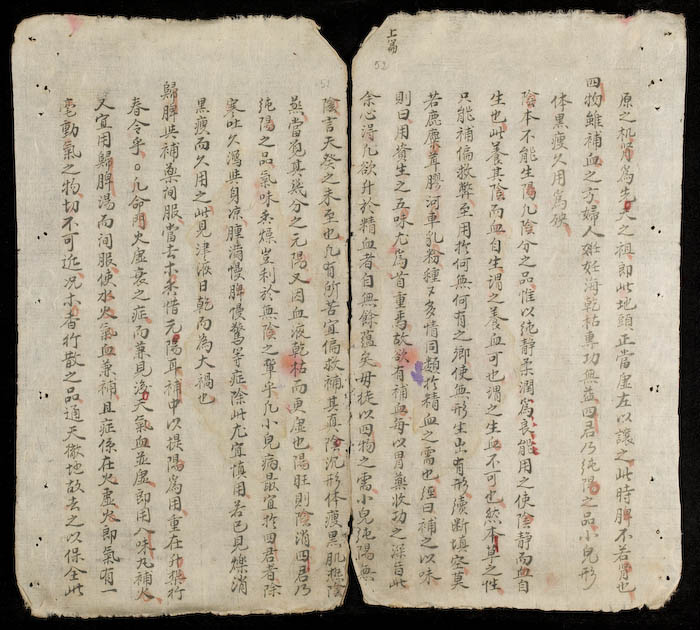 上篇
52
原之机腎為先天之祖即此地頭正當虛左以讓之此時脾不若腎也
四物雖補血之方婦人姙娠海乾枯專功無益四君乃純陽之品小兒形
体黒瘦久用為殃
陰本不能生陽凡陰分之品惟以純静柔潤為主能用之使陰静而血自
生也此養其陰而血自生謂之養血可也謂之生血不可也然本草之性
只能補偏救弊至用於何無何有之鄉使無形生出有形續斷填空莫
若鹿麋茸膠河車乳粉種又多情同類於精血之需也經曰補之以味
則曰用資生之五味尤為首重焉故欲有補血每以胃藥收功之深旨此
余心得凡欲升於精血者自無餘蘊矣毋徒以四物之需小兒純陽無
陰言天癸之未至也凡有所苦宜偏救補其真陰沉形体瘦黒肌槁陰
蒸當範其幾分之元陽又因血液乾枯而更虛也陽旺則陰消四君乃
純陽之品氣味香燥豈利於無陰之輩乎凡小兒病最宜於四君者除
寒吐久瀉與身凉腫滿慢脾慢驚等症除此尤宜慎用若已見爍消
黒瘦而久用之此見津液日乾而為大禍也
歸脾與補藥间服當去木香惜元陽耳補中以提陽為用重在升柴行
春令乎○凡命門火虛衰之症而兼見後天氣血並虛即用八味丸補火
又宜用歸脾湯而间服使水火氣血兼補且症係在火虛火即氣有一
毫動氣之物切不可近况木香行散之品通天徹地故去之以保全此